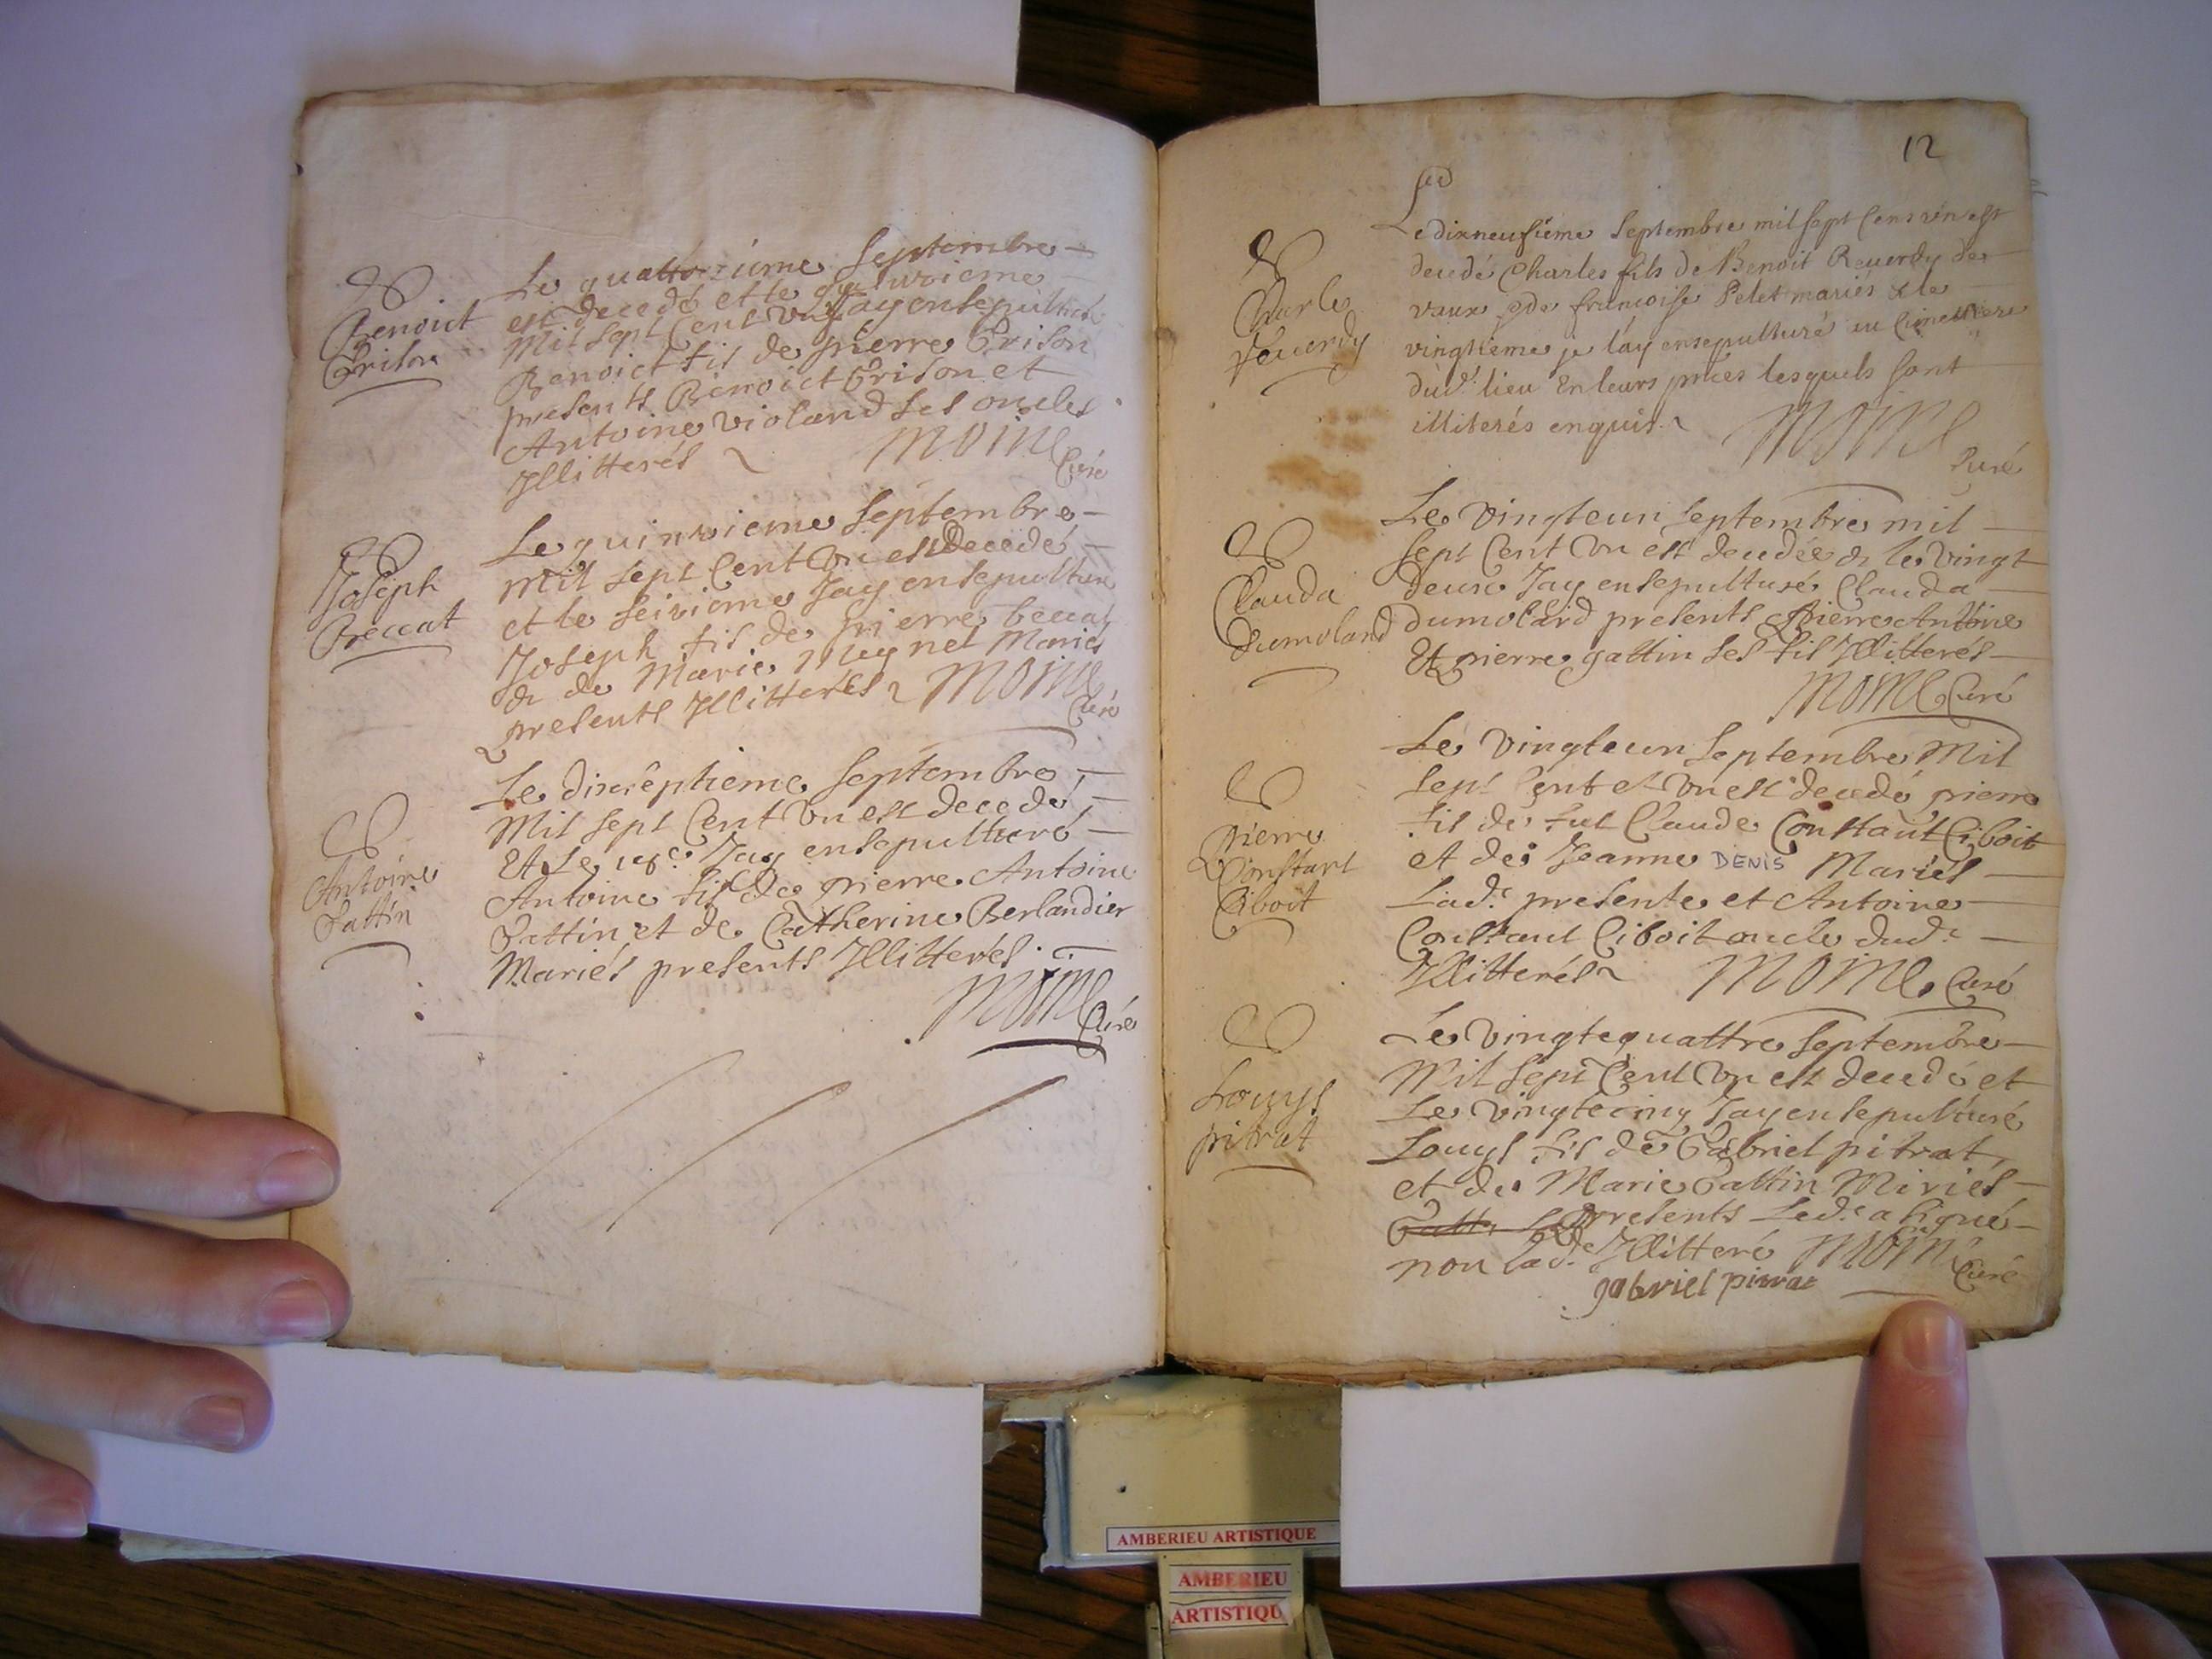 Benoict
Grison
Le quattorzieme Septembre
est decedé et le quinzieme
Mil sept Cent un Jay ensepulturé
Benoict fil de pierre Grison
presents Benoict Grison et
Antoine violand ses oncles
Illitterés
MOINE
Curé
Joseph
Beccat
Le quinzieme Septembre
mil sept Cent Un est Decedé
et le seizieme Jay ensepulture
Joseph fil de pierre beccat
& de Marie Mariés
presents Illitterés MOINE
Curé
Antoine
Gattin
Le dixseptieme Septembre
Mil sept Cent Un est decedé
Et Le 18e Jay ensepulturé
Antoine fil de pierre Antoine
Gattin et de Catherine Berlandier
Mariés presents Illitterés.
MOINE
Curé
12
Led
Charles
Reuerdy
Le dixneufieme Septembre mil sept Cens un est
decedé Charles fils de Benoit Reuerdy de
vaux & de françoise Pelet mariés & le
vingtieme je láy ensepulturé au Cimettiere
dud. lieu En leurs pnces lesquels sont
illiterés enquis.
MOINE
Curé
Clauda
Dumolard
Le Vingteun Septembre mil
sept Cent Un est decedée & le vingt
deux Jay ensepulturé Clauda
dumolard presents pierre Antoine
Et pierre gattin ses fil Illitterés
MOINE Curé
pierre
Constant
Ciboit
Le Vingteun Septembre Mil
sept Cent et Un est decedé pierre
fil de fut Claude Constant Ciboit
et de Jeanne DENIS Mariés
Lad.e presente et Antoine
Constant Ciboit oncle dud.
Illitterés MOINE Curé
Louys
pitrat
Le Vingtequattre Septembre
Mil Sept Cent Un est decedé et
Le Vingtecinq Jay ensepulturé
Louys fil de Gabriel pitrat,
et de Marie Gattin Miriés
presents Led.e a signé
non Lad.e Illitteré MOINE
Curé
gabriel pitrat
AMBERIEU ARTISTIQUE
AMBERIEU
ARTISTIQU